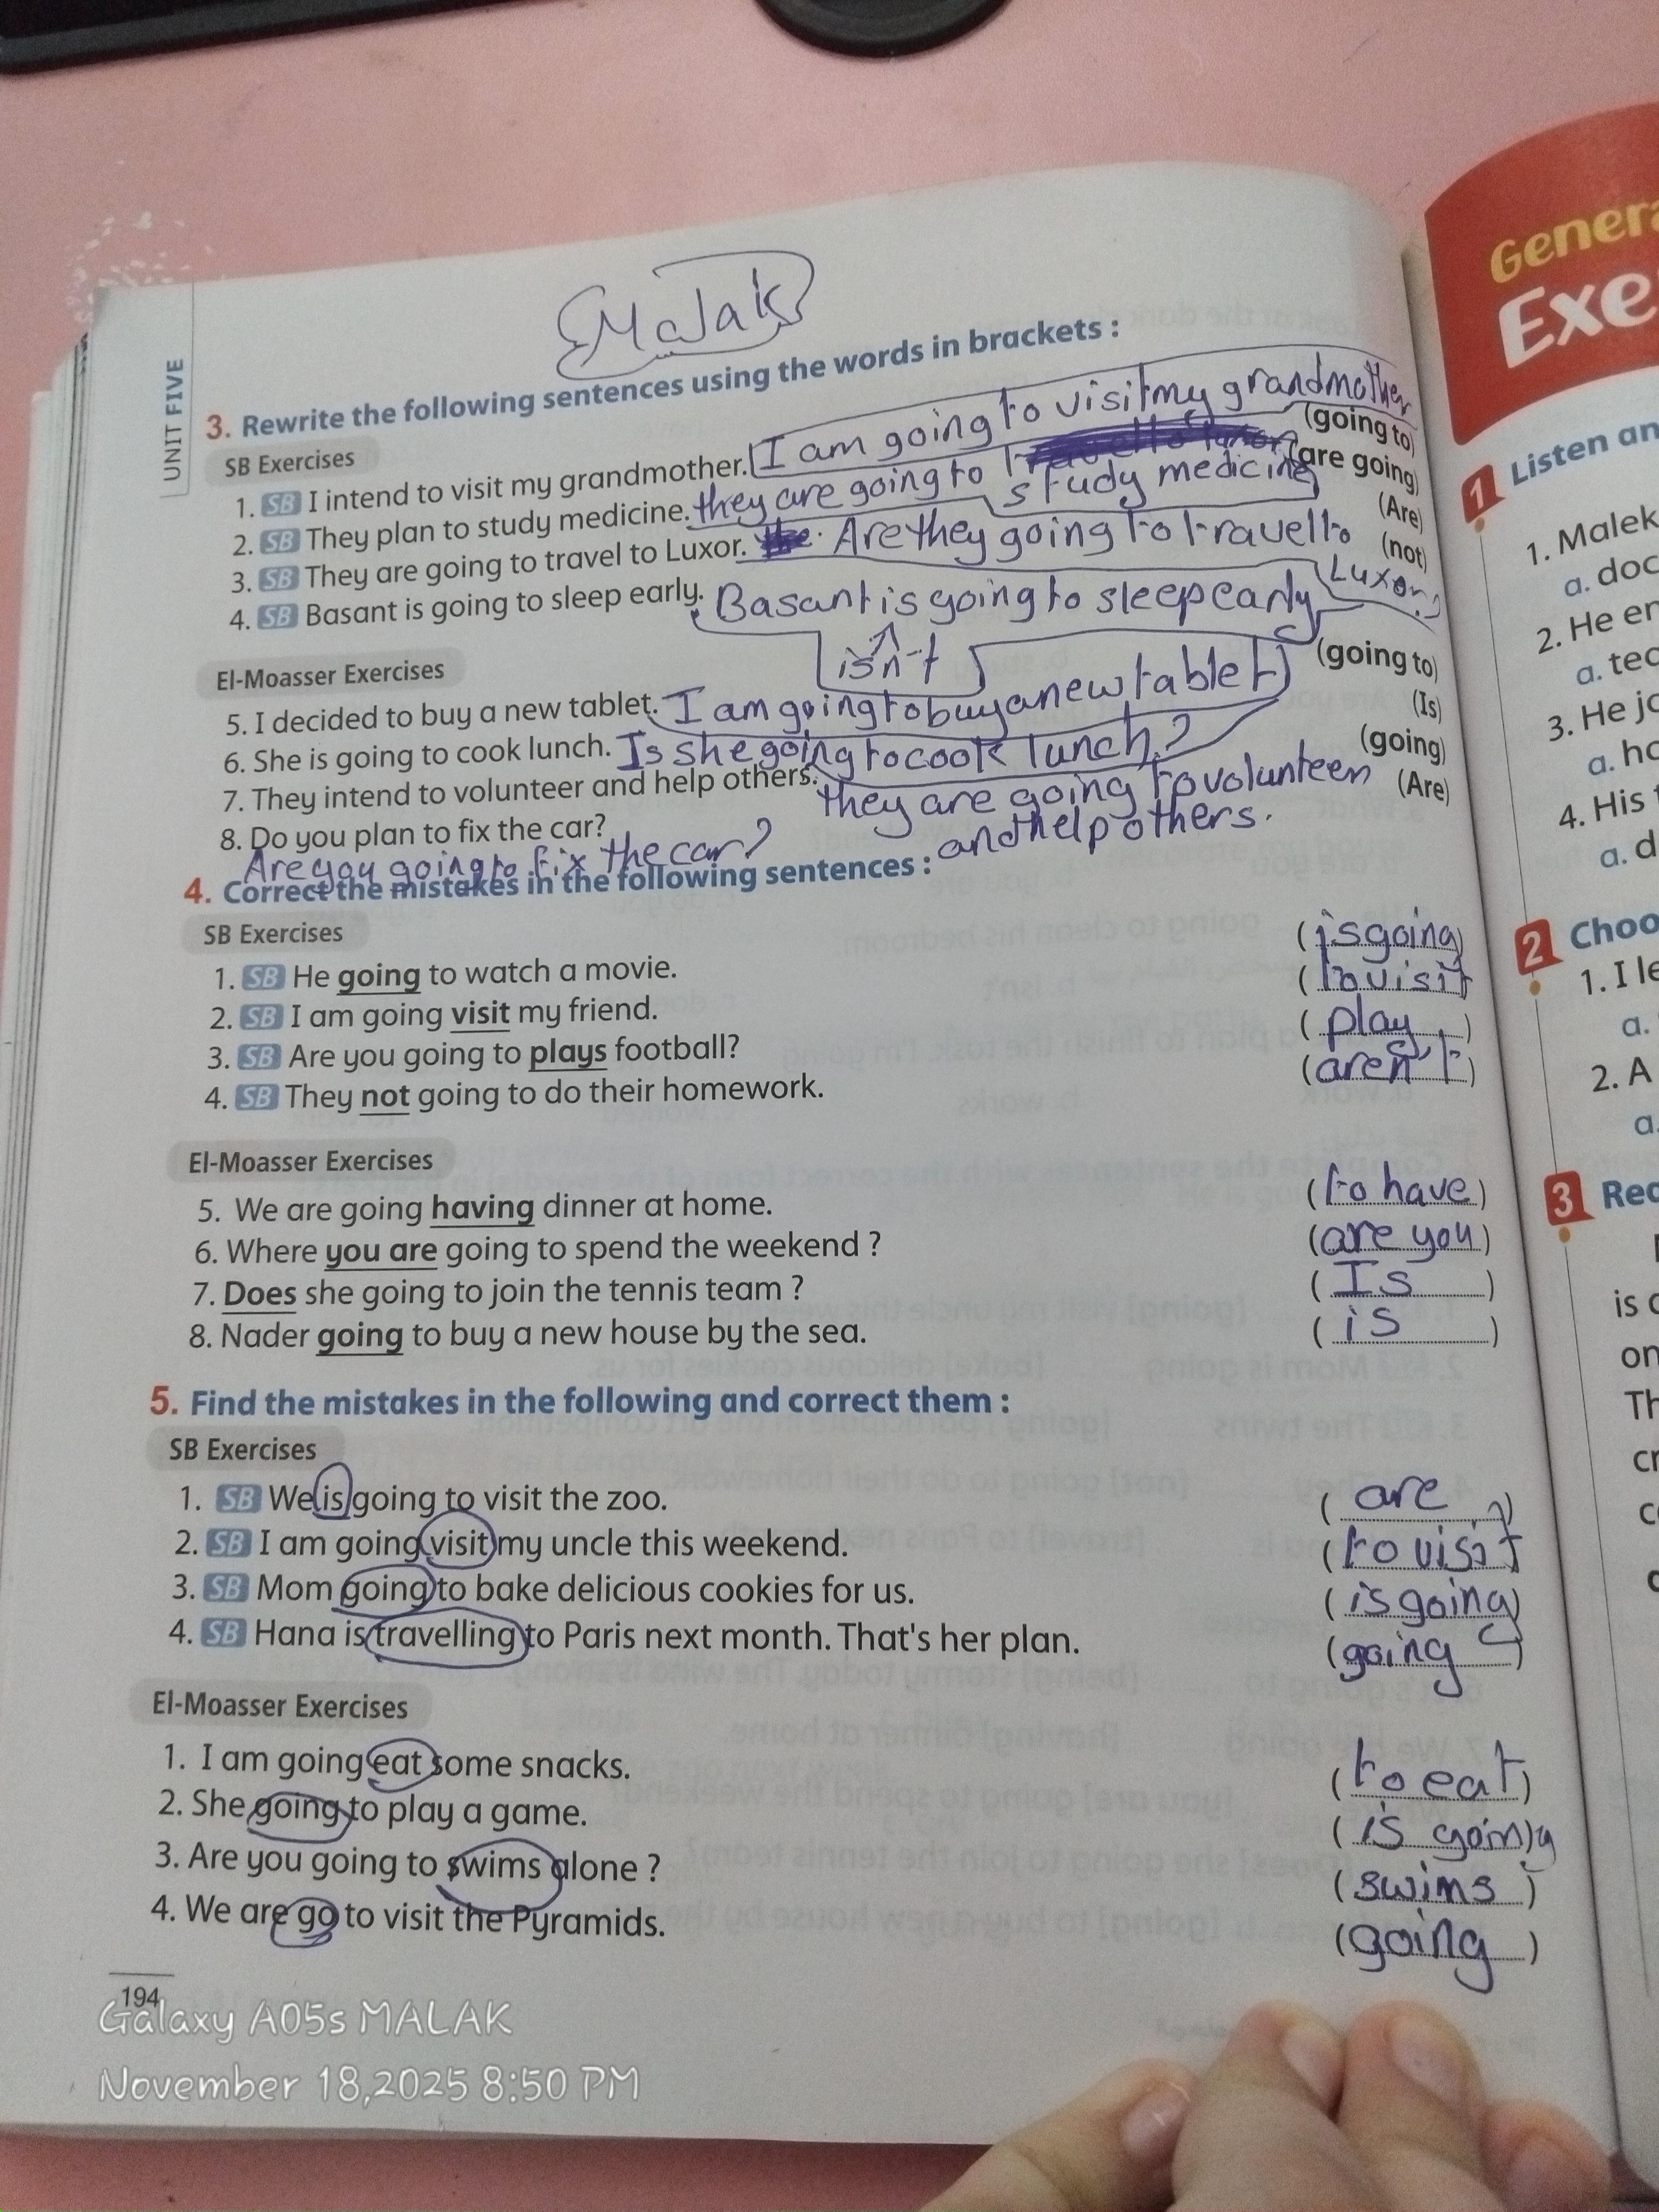 Malak
UNIT FIVE
3. Rewrite the following sentences using the words in brackets :
SB Exercises
1. SB I intend to visit my grandmother. I am going to visit my grandmother (going to)
2. SB They plan to study medicine. they are going to study medicine (are going)
3. SB They are going to travel to Luxor. Are they going to travel to Luxor? (Are)
4. SB Basant is going to sleep early. Basant is going to sleep early (not)
isn't
El-Moasser Exercises
5. I decided to buy a new tablet. I am going to buy a new tablet (going to)
6. She is going to cook lunch. Is she going to cook lunch? (Is)
7. They intend to volunteer and help others. they are going to volunteer (going)
and help others.
8. Do you plan to fix the car? (Are)
Are you going to fix the car?
4. Correct the mistakes in the following sentences :
SB Exercises
1. SB He going to watch a movie. (is going)
2. SB I am going visit my friend. (to visit)
3. SB Are you going to plays football? (play)
4. SB They not going to do their homework. (aren't)
El-Moasser Exercises
5. We are going having dinner at home. (to have)
6. Where you are going to spend the weekend ? (are you)
7. Does she going to join the tennis team ? (Is)
8. Nader going to buy a new house by the sea. (is)
5. Find the mistakes in the following and correct them :
SB Exercises
1. SB We is going to visit the zoo. (are)
2. SB I am going visit my uncle this weekend. (to visit)
3. SB Mom going to bake delicious cookies for us. (is going)
4. SB Hana is travelling to Paris next month. That's her plan. (going)
El-Moasser Exercises
1. I am going eat some snacks. (to eat)
2. She going to play a game. (is going)
3. Are you going to swims alone ? (swims)
4. We are go to visit the Pyramids. (going)
194
Galaxy A05s MALAK
November 18,2025 8:50 PM
General
Exe
1 Listen an
1. Malek
a. doc
2. He er
a. tec
3. He jo
a. ho
4. His
a. d
2 Choo
1. I le
a.
2. A
a.
3 Rec
is
on
Th
cr